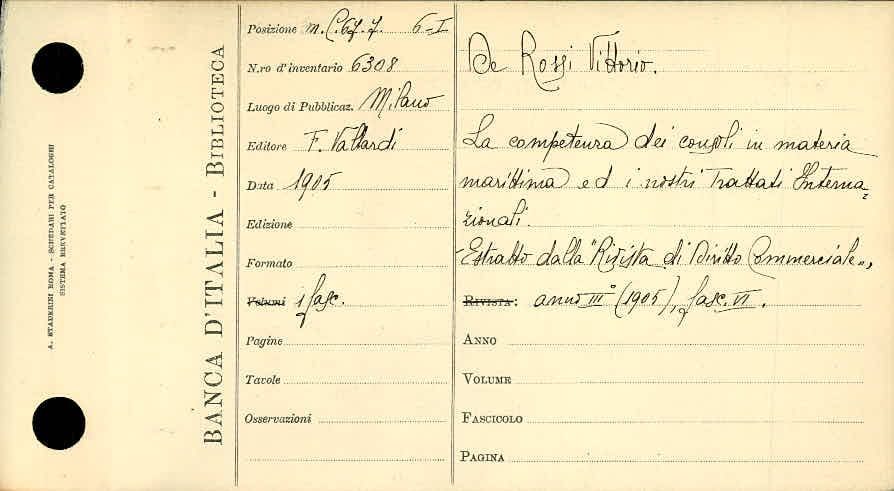 A. STADERINI ROMA - SCHEDARI PER CATALOGHI
SISTEMA BREVETTATO
BANCA D'ITALIA - BIBLIOTECA
Posizione m. C. 67. 7. 6-I
N.ro d'inventario 6308
Luogo di Pubblicaz. Milano
Editore F. Vallardi
Data 1905
Edizione
Formato
Volumi 1 fasc.
Pagine
Tavole
Osservazioni
De Rossi Vittorio.
La competenza dei consoli in materia
marittima ed i nostri Trattati Interna=
zionali.
- Estratto dalla "Rivista di Diritto Commerciale",
RIVISTA: anno III° (1905), fasc. VI.
ANNO
VOLUME
FASCICOLO
PAGINA